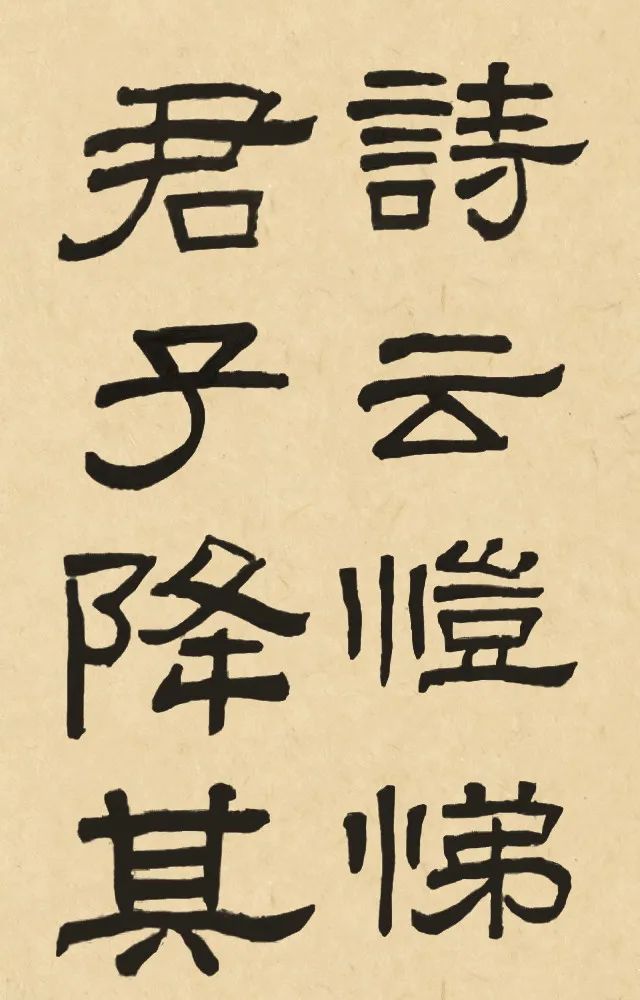 詩云愷悌
君子降其